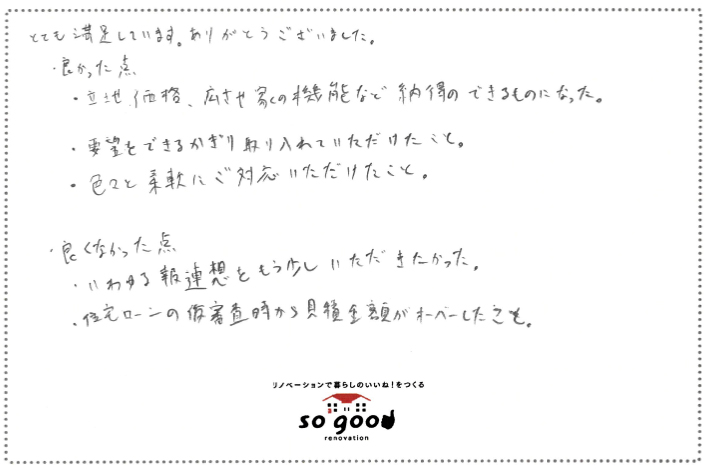 とても満足しています。ありがとうございました。
・良かった点
・立地、価格、広さや家の機能など納得のできるものになった。
・要望をできるかぎり取り入れていただけたこと。
・色々と柔軟にご対応いただけたこと。
・良くなかった点
・いわゆる報連想をもう少しいただきたかった。
・住宅ローンの仮審査時から見積金額がオーバーしたこと。
リノベーションで暮らしのいいね！をつくる
so good
renovation